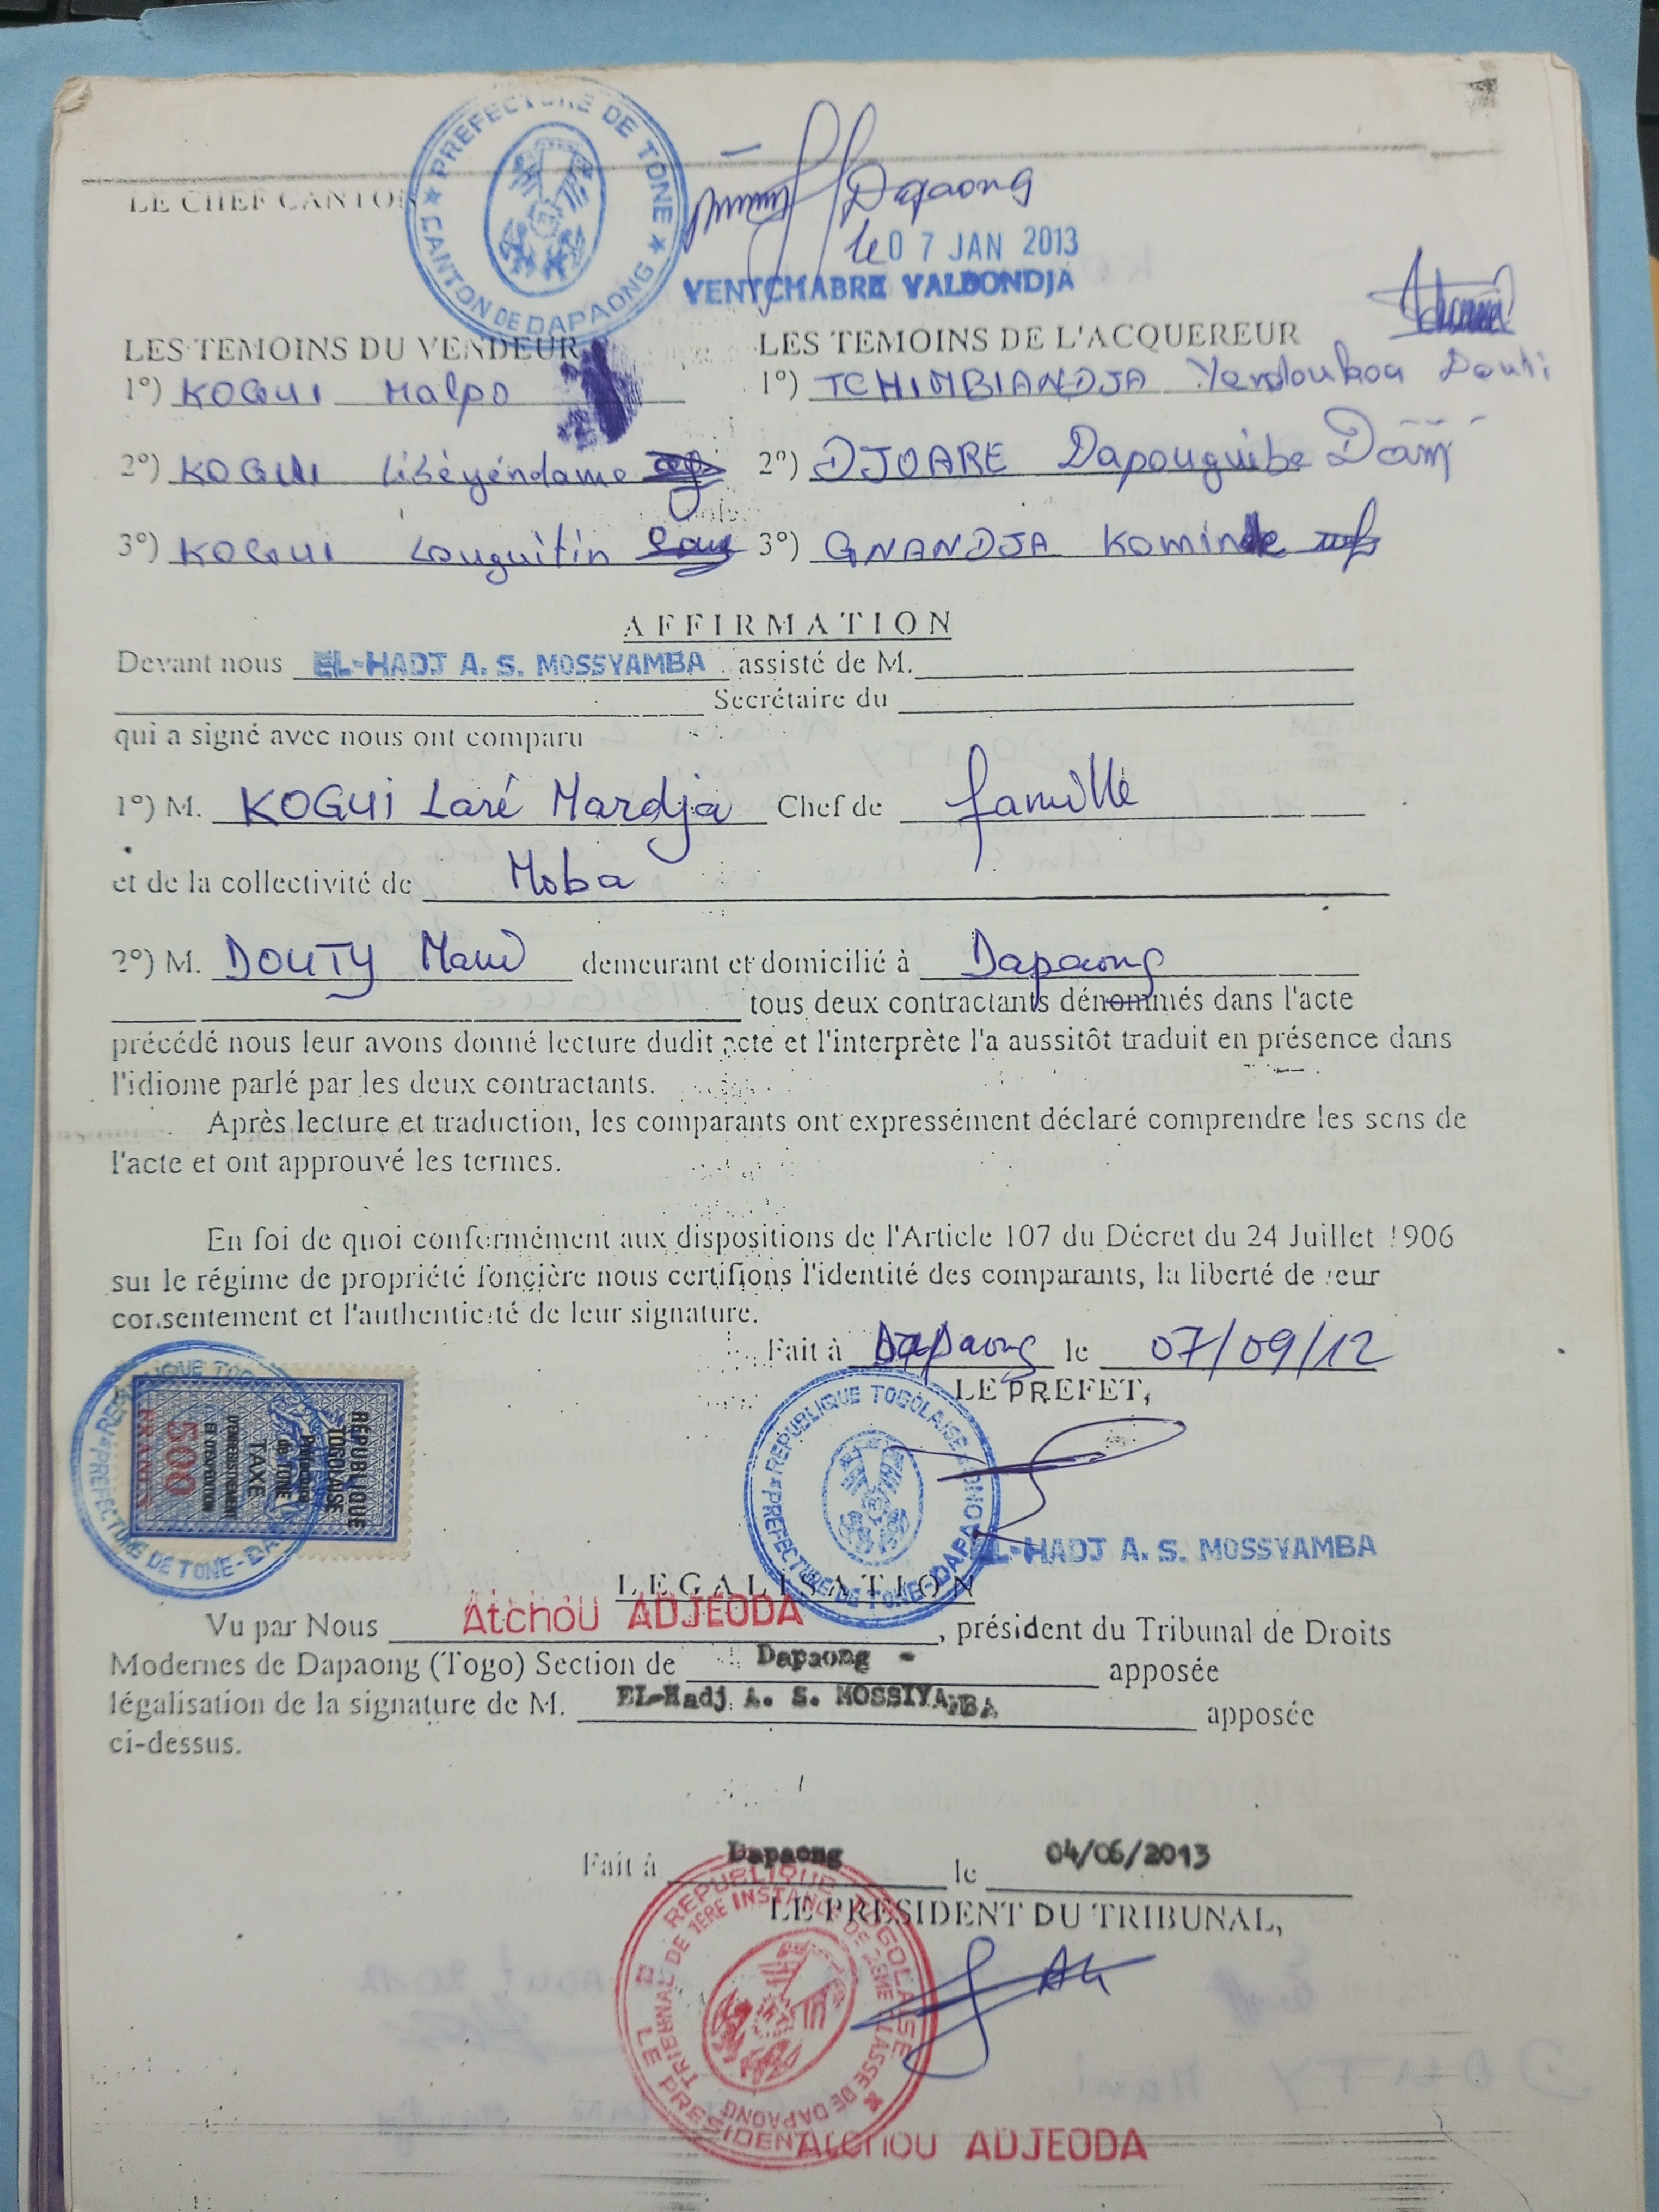 PREFECTURE DE TONE
CANTON DE DAPAONG
LE CHEF CANTON
Dapaong
le 07 JAN 2013
YENTCHABRE YALBONDJA
LES TEMOINS DU VENDEUR
1°) KOGUI Malpo
2°) KOGUI Libéyéndame
3°) KOGUI Louguitin
LES TEMOINS DE L'ACQUEREUR
1°) TCHIMBIANDJA Yendoukoa Douti
2°) DJOARE Dapouguibe
3°) GNANDJA Kominle
AFFIRMATION
Devant nous EL-HADJ A. S. MOSSYAMBA assisté de M.
Secrétaire du
qui a signé avec nous ont comparu
1°) M. KOGUI Laré Mardja Chef de famille
et de la collectivité de Moba
2°) M. DOUTY Mani demeurant et domicilié à Dapaong
tous deux contractants dénommés dans l'acte
précédé nous leur avons donné lecture dudit acte et l'interprète l'a aussitôt traduit en présence dans
l'idiome parlé par les deux contractants.
Après lecture et traduction, les comparants ont expressément déclaré comprendre les sens de
l'acte et ont approuvé les termes.
En foi de quoi conformément aux dispositions de l'Article 107 du Décret du 24 Juillet 1906
sur le régime de propriété fonçière nous certifions l'identité des comparants, la liberté de leur
consentement et l'authenticité de leur signature.
Fait à Dapaong le 07/09/12
LE PREFET,
REPUBLIQUE TOGOLAISE
PREFECTURE DE TONE-DAPAONG
EL-HADJ A. S. MOSSYAMBA
REPUBLIQUE
TOGOLAISE
Préfecture
de TONE
TAXE
D'ENREGISTREMENT
ET D'EXPEDITION
500
FRANCS
LEGALISATION
Vu par Nous Atchou ADJEODA, président du Tribunal de Droits
Modernes de Dapaong (Togo) Section de Dapaong - apposée
légalisation de la signature de M. EL-Hadj A. S. MOSSIYAMBA apposée
ci-dessus.
Fait à Dapaong le 04/06/2013
LE PRESIDENT DU TRIBUNAL,
REPUBLIQUE TOGOLAISE
TRIBUNAL DE 1ERE INSTANCE DE 2EME CLASSE DE DAPAONG
LE PRESIDENT
Atchou ADJEODA